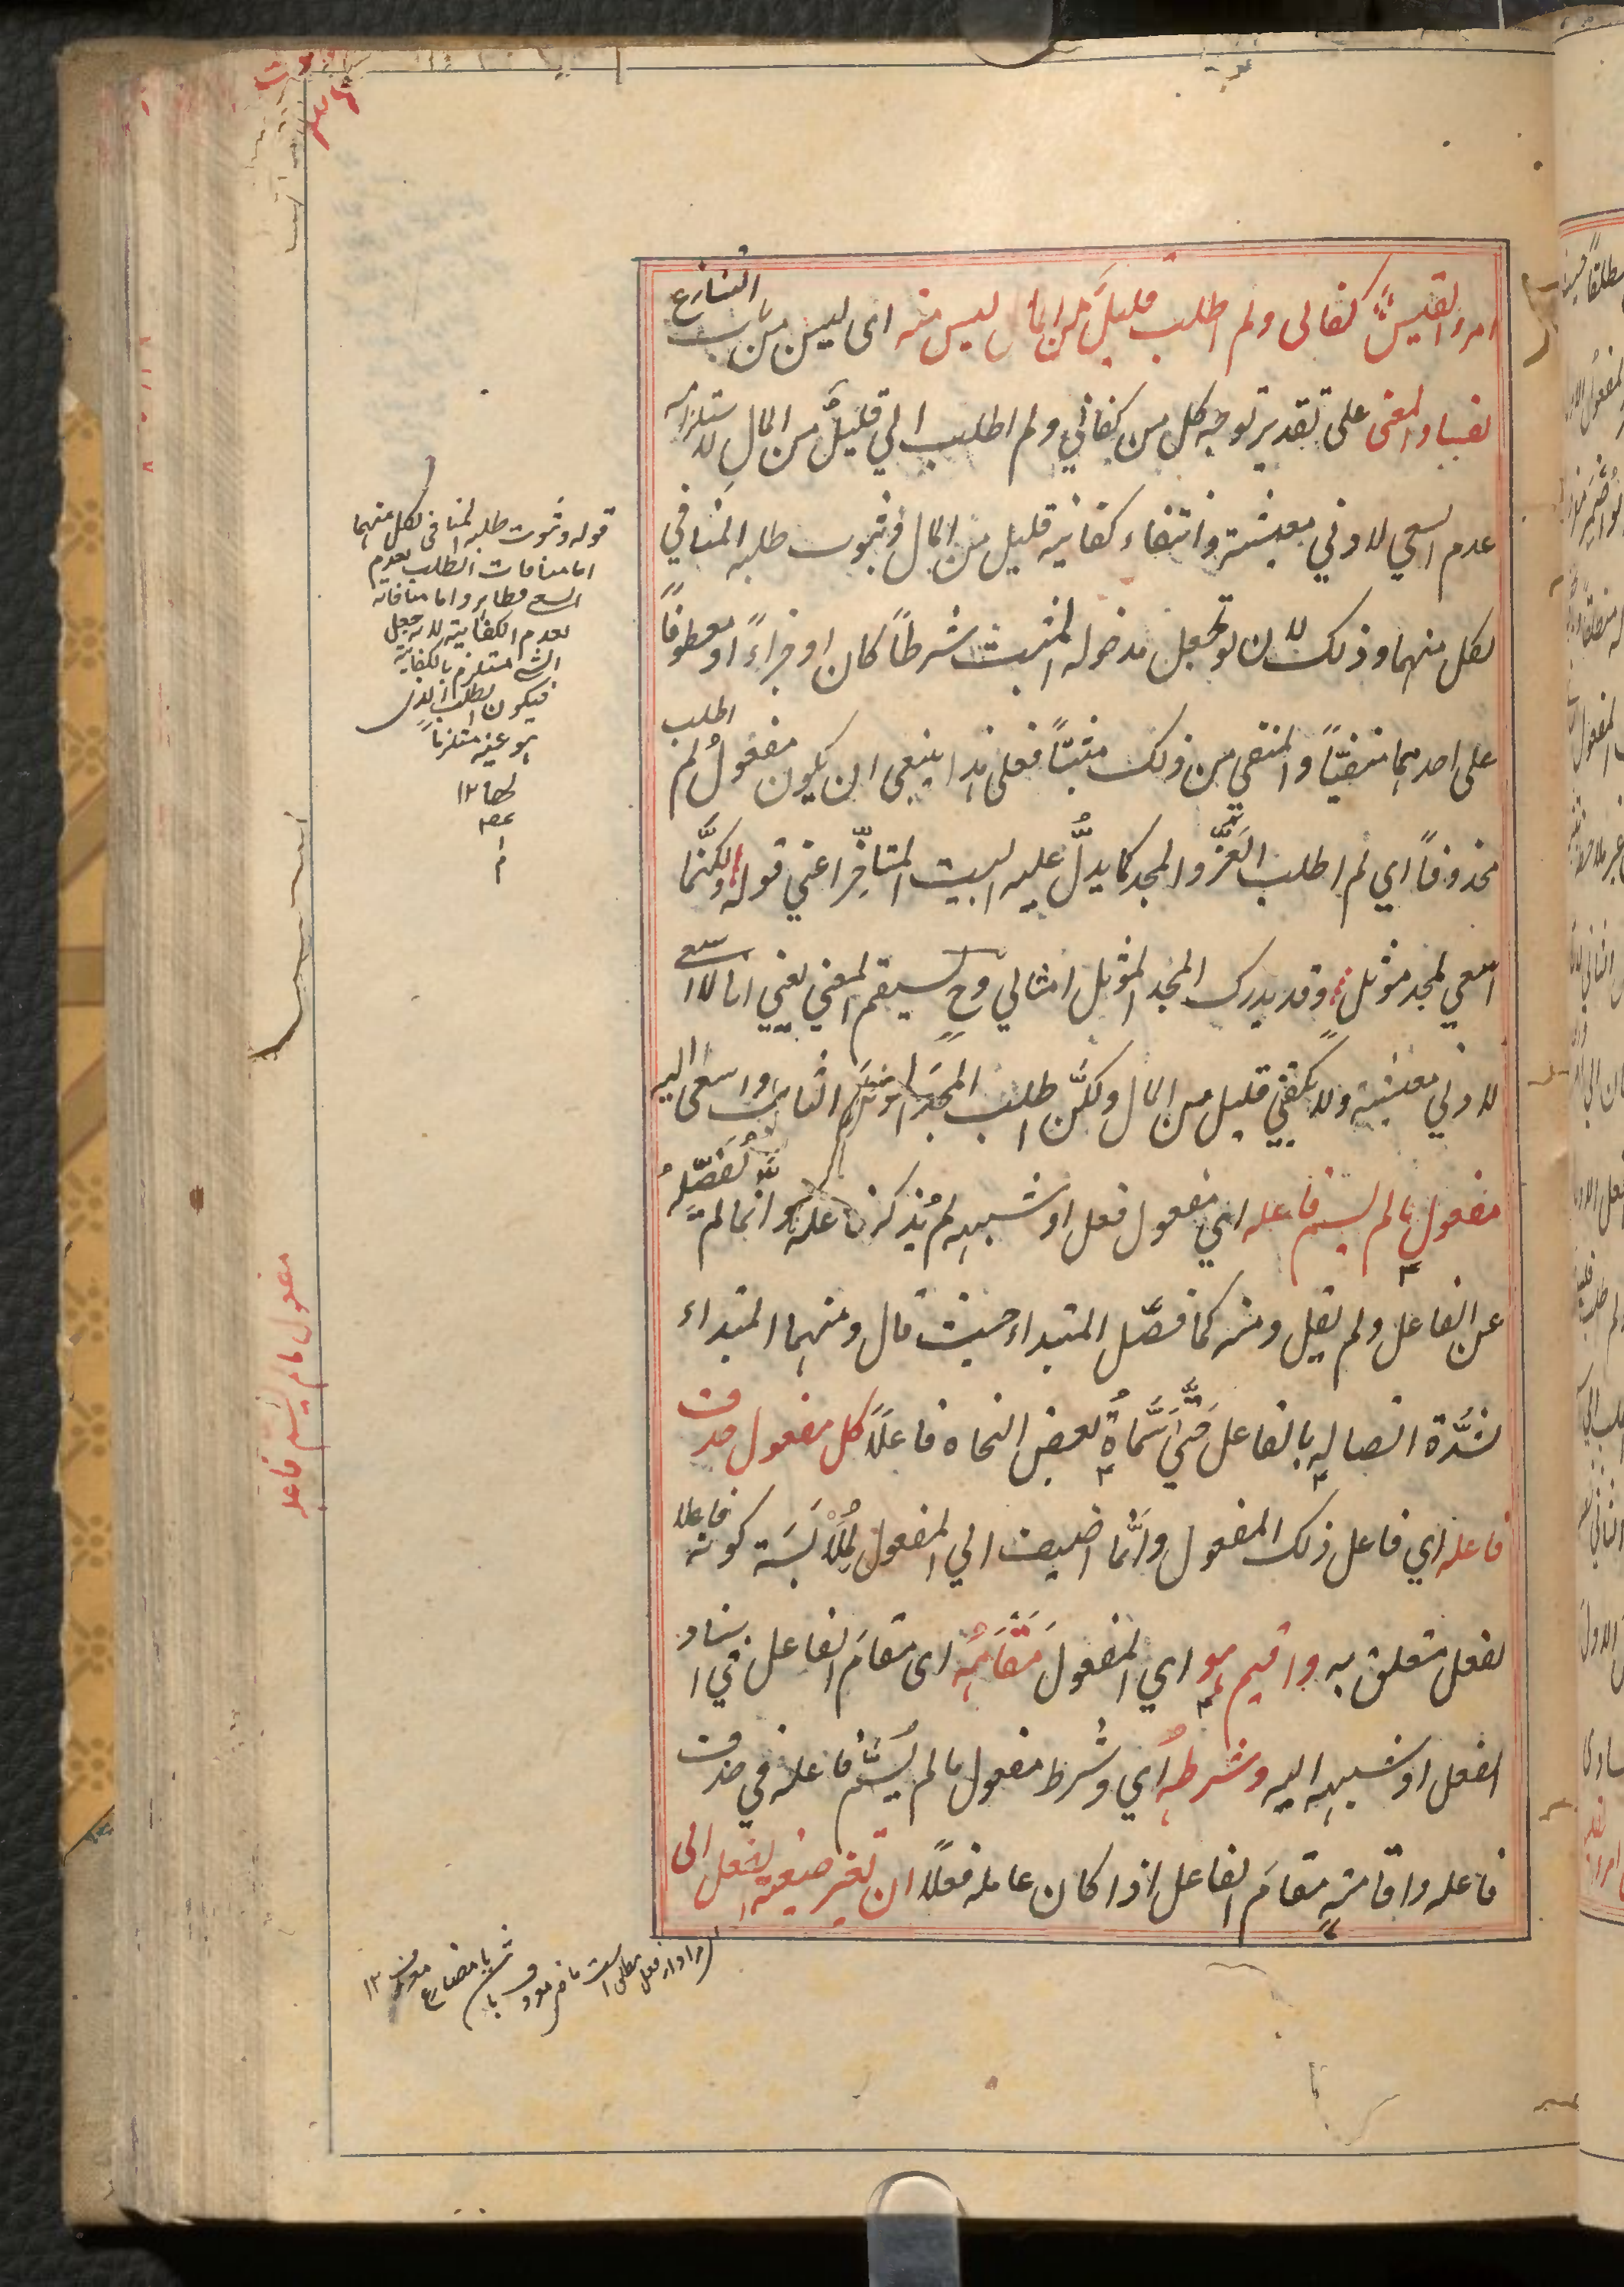 امرؤ القيس كفانى ولم اطلب قليلٌ من المال ليس منه اى ليس من باب التنازع
لفساد المعنى على تقدير توجّه كل من كفاني ولم اطلب الي قليلٌ من المال لاستلزامه
عدم السعي لادني معيشة وانتفاء كفاية قليل من المال وثبوت طلبه المنافي
لكل منهما وذلك لان لو تجعل مدخوله المثبت شرطاً كان او جزاءً او معطوفاً
على احدهما منتفيًا والمنتفي من ذلك مثبتًا فعلى هذا ينبغي ان يكون مفعولُ لم اطلب
محذوفاً اي لم اطلب العزَّ والمجد كما يدلُّ عليه البيت المتأخّر اعني قوله ولكنَّما
اسعي لمجد مؤثل وقد يدرك المجد المؤثل امثالي وح يستقيم المعني يعني انا لا اسعى
لادني معيشة ولا يكفني قليل من المال ولكنّ اطلب المجدَ المؤثل الثابت واسعى اليه
مفعول ما لم يسم فاعله اي مفعول فعل او شبهه لم يُذكر فاعله وانما لم يُفَصّلهُ
عن الفاعل ولم يقل ومنه كما فصّل المبتداء حيث قال ومنهما المبتداء
لشدّة اتصاله بالفاعل حتّي سَمّاهُ بعض النحاة فاعلاً كل مفعول حذف
فاعله اي فاعل ذلك المفعول وانّما اضيف الي المفعول لِمُلَابَسَة كونه فاعلا
لفعل متعلق به واقيم هو اي المفعولَ مَقَامَهُ اى مقامَ الفاعل في اسناد
الفعل او شبهه اليه وشرطه اي وشرط مفعول ما لم يُسَمّ فاعله في حذف
فاعله واقامته مقامَ الفاعل اذا كان عامله فعلاً ان تغير صيغة الفعل الى
قوله وثبوت طلبه المنافى لكل منهما
اما منافات الطلب لعدم
السعي فظاهر واما منافاته
لعدم الكفاية لانه جعل
السعي مستلزم بالكفاية
فيكون الطلب الذى
هو عينه مستلزماً
لها ١٢
مفعول ما لم يسم فاعله